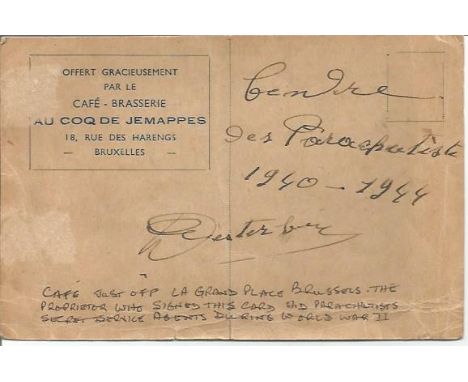 OFFERT GRACIEUSEMENT
PAR LE
CAFÉ - BRASSERIE
AU COQ DE JEMAPPES
18, RUE DES HARENGS
— BRUXELLES —
Centre
des Parachutiste
1940 - 1944
CAFÉ JUST OFF LA GRAND PLACE BRUSSELS. THE
PROPRIETOR WHO SIGNED THIS CARD HID PARACHUTISTS
SECRET SERVICE AGENTS DURING WORLD WAR II